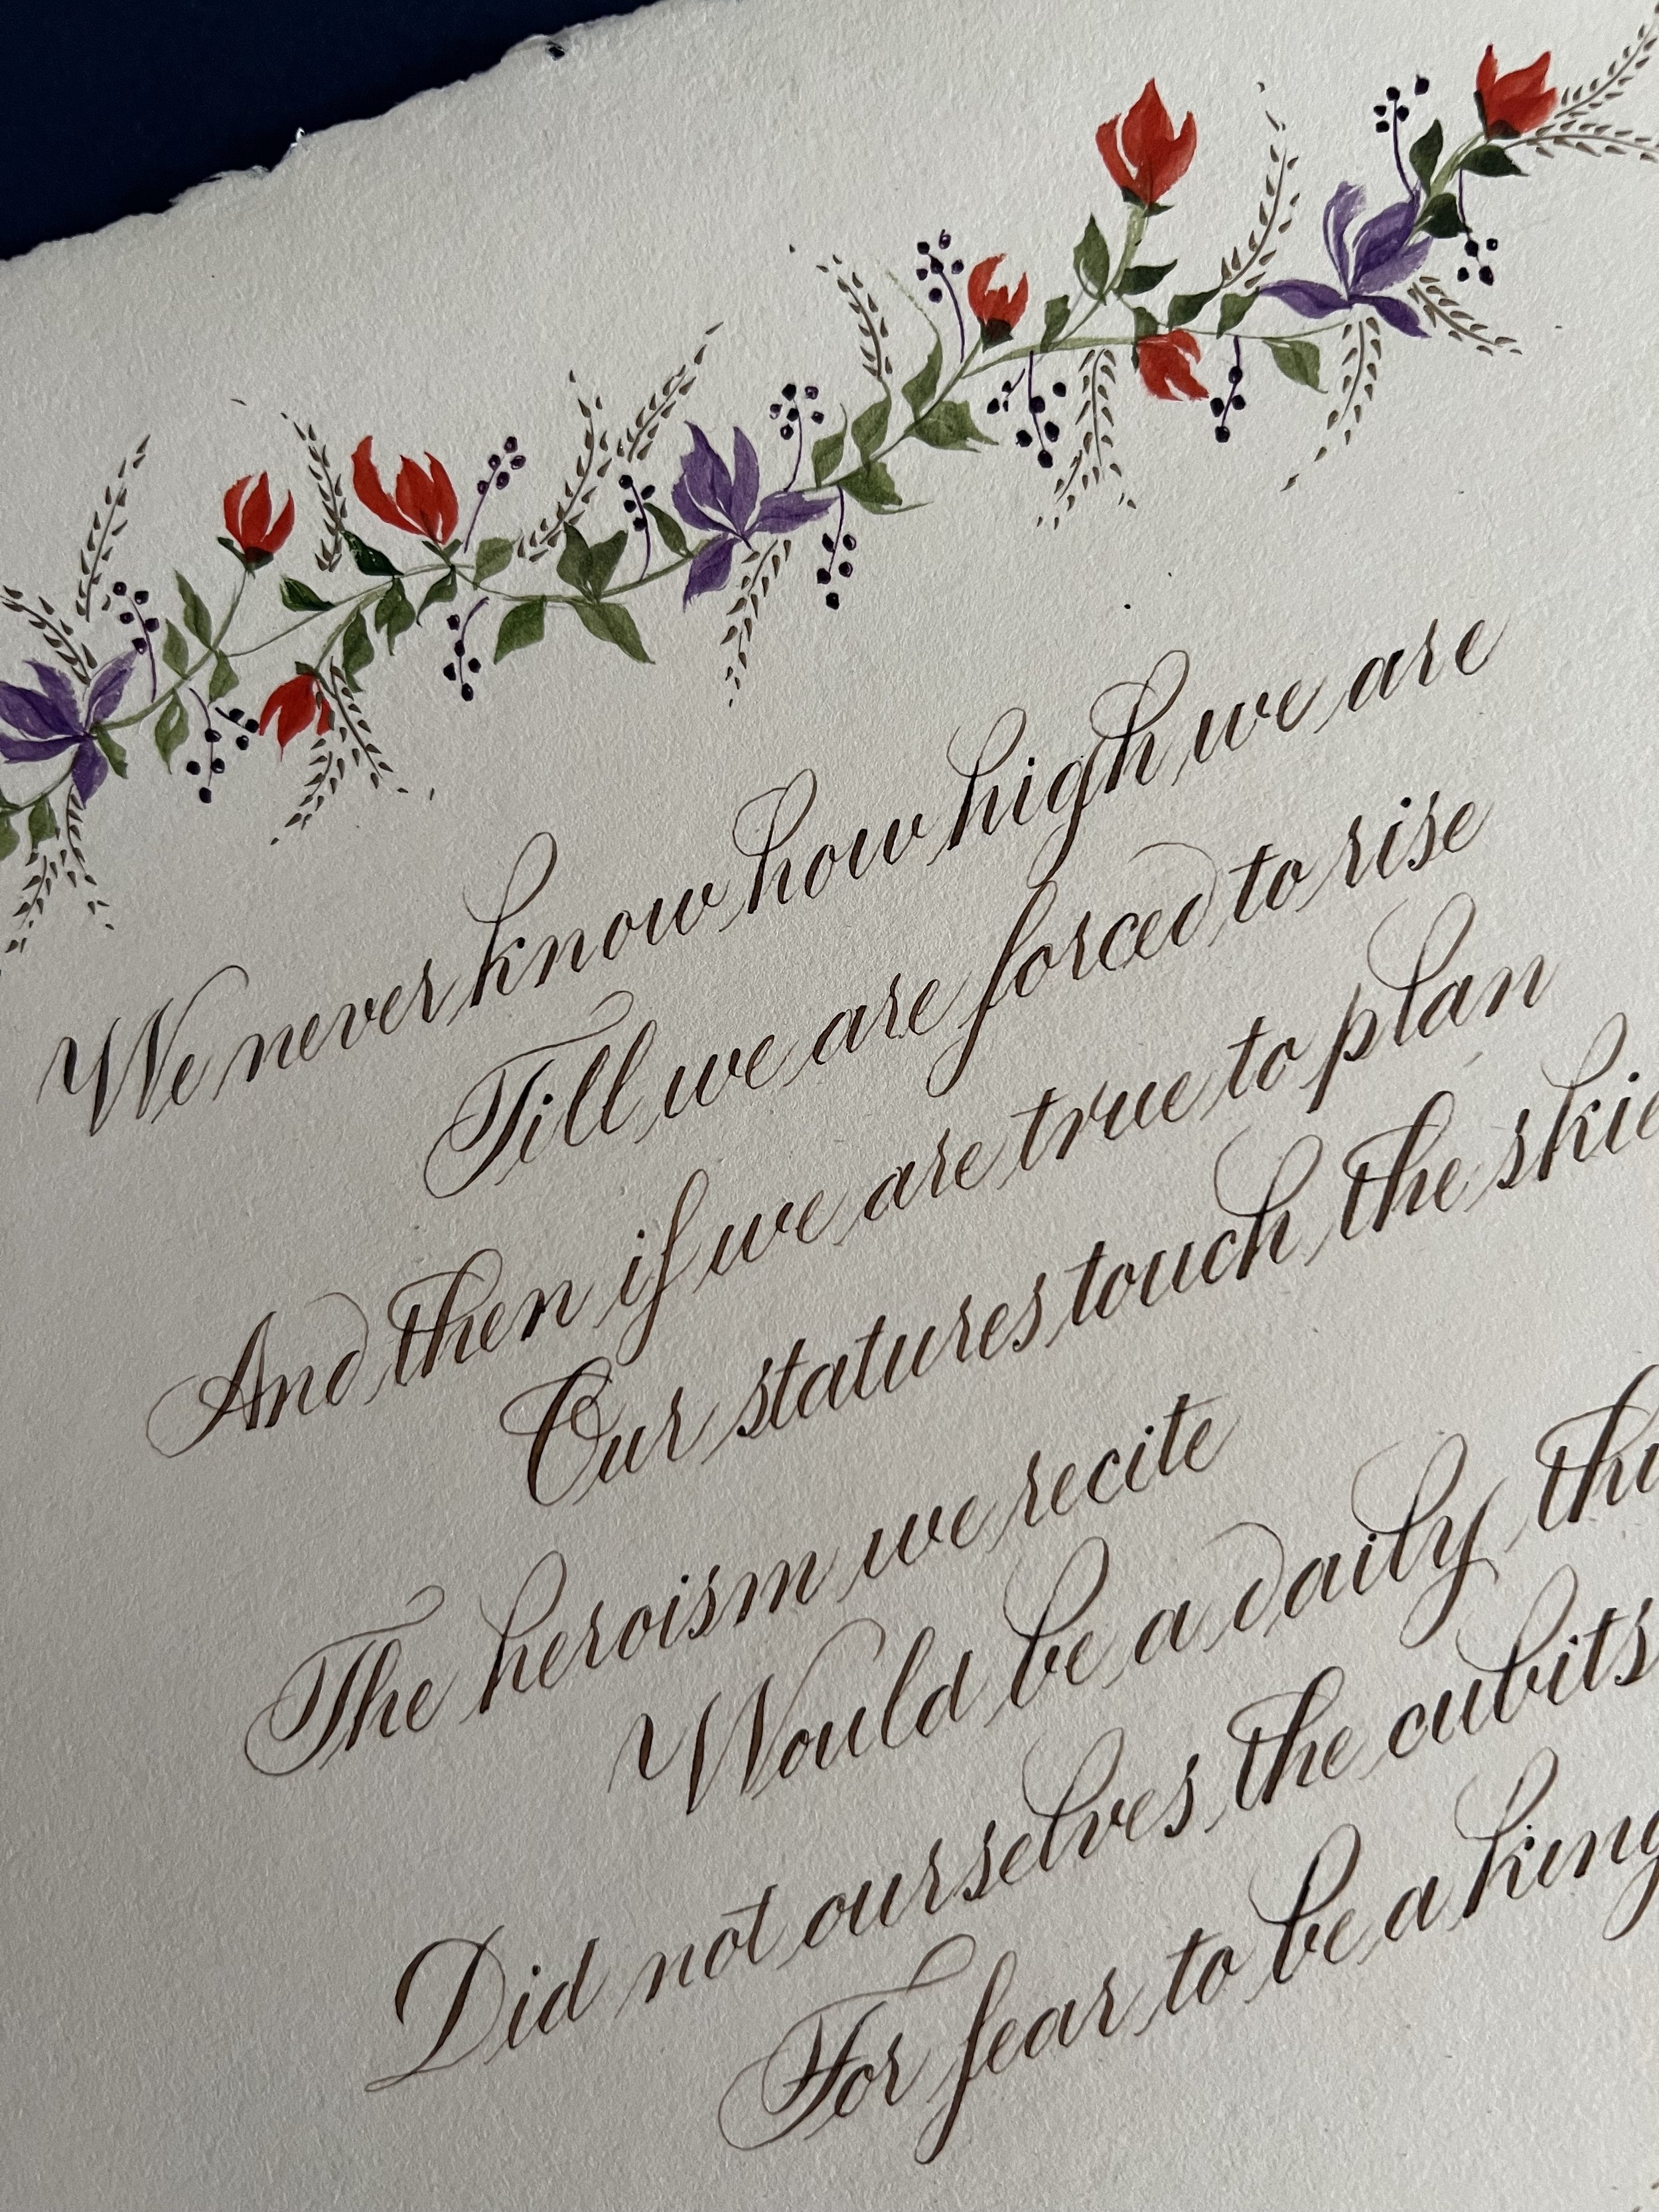 We never know how high we are
Till we are forced to rise
And then if we are true to plan
Our statures touch the skie
The heroism we recite
Would be a daily thi
Did not ourselves the cubits
For fear to be a king